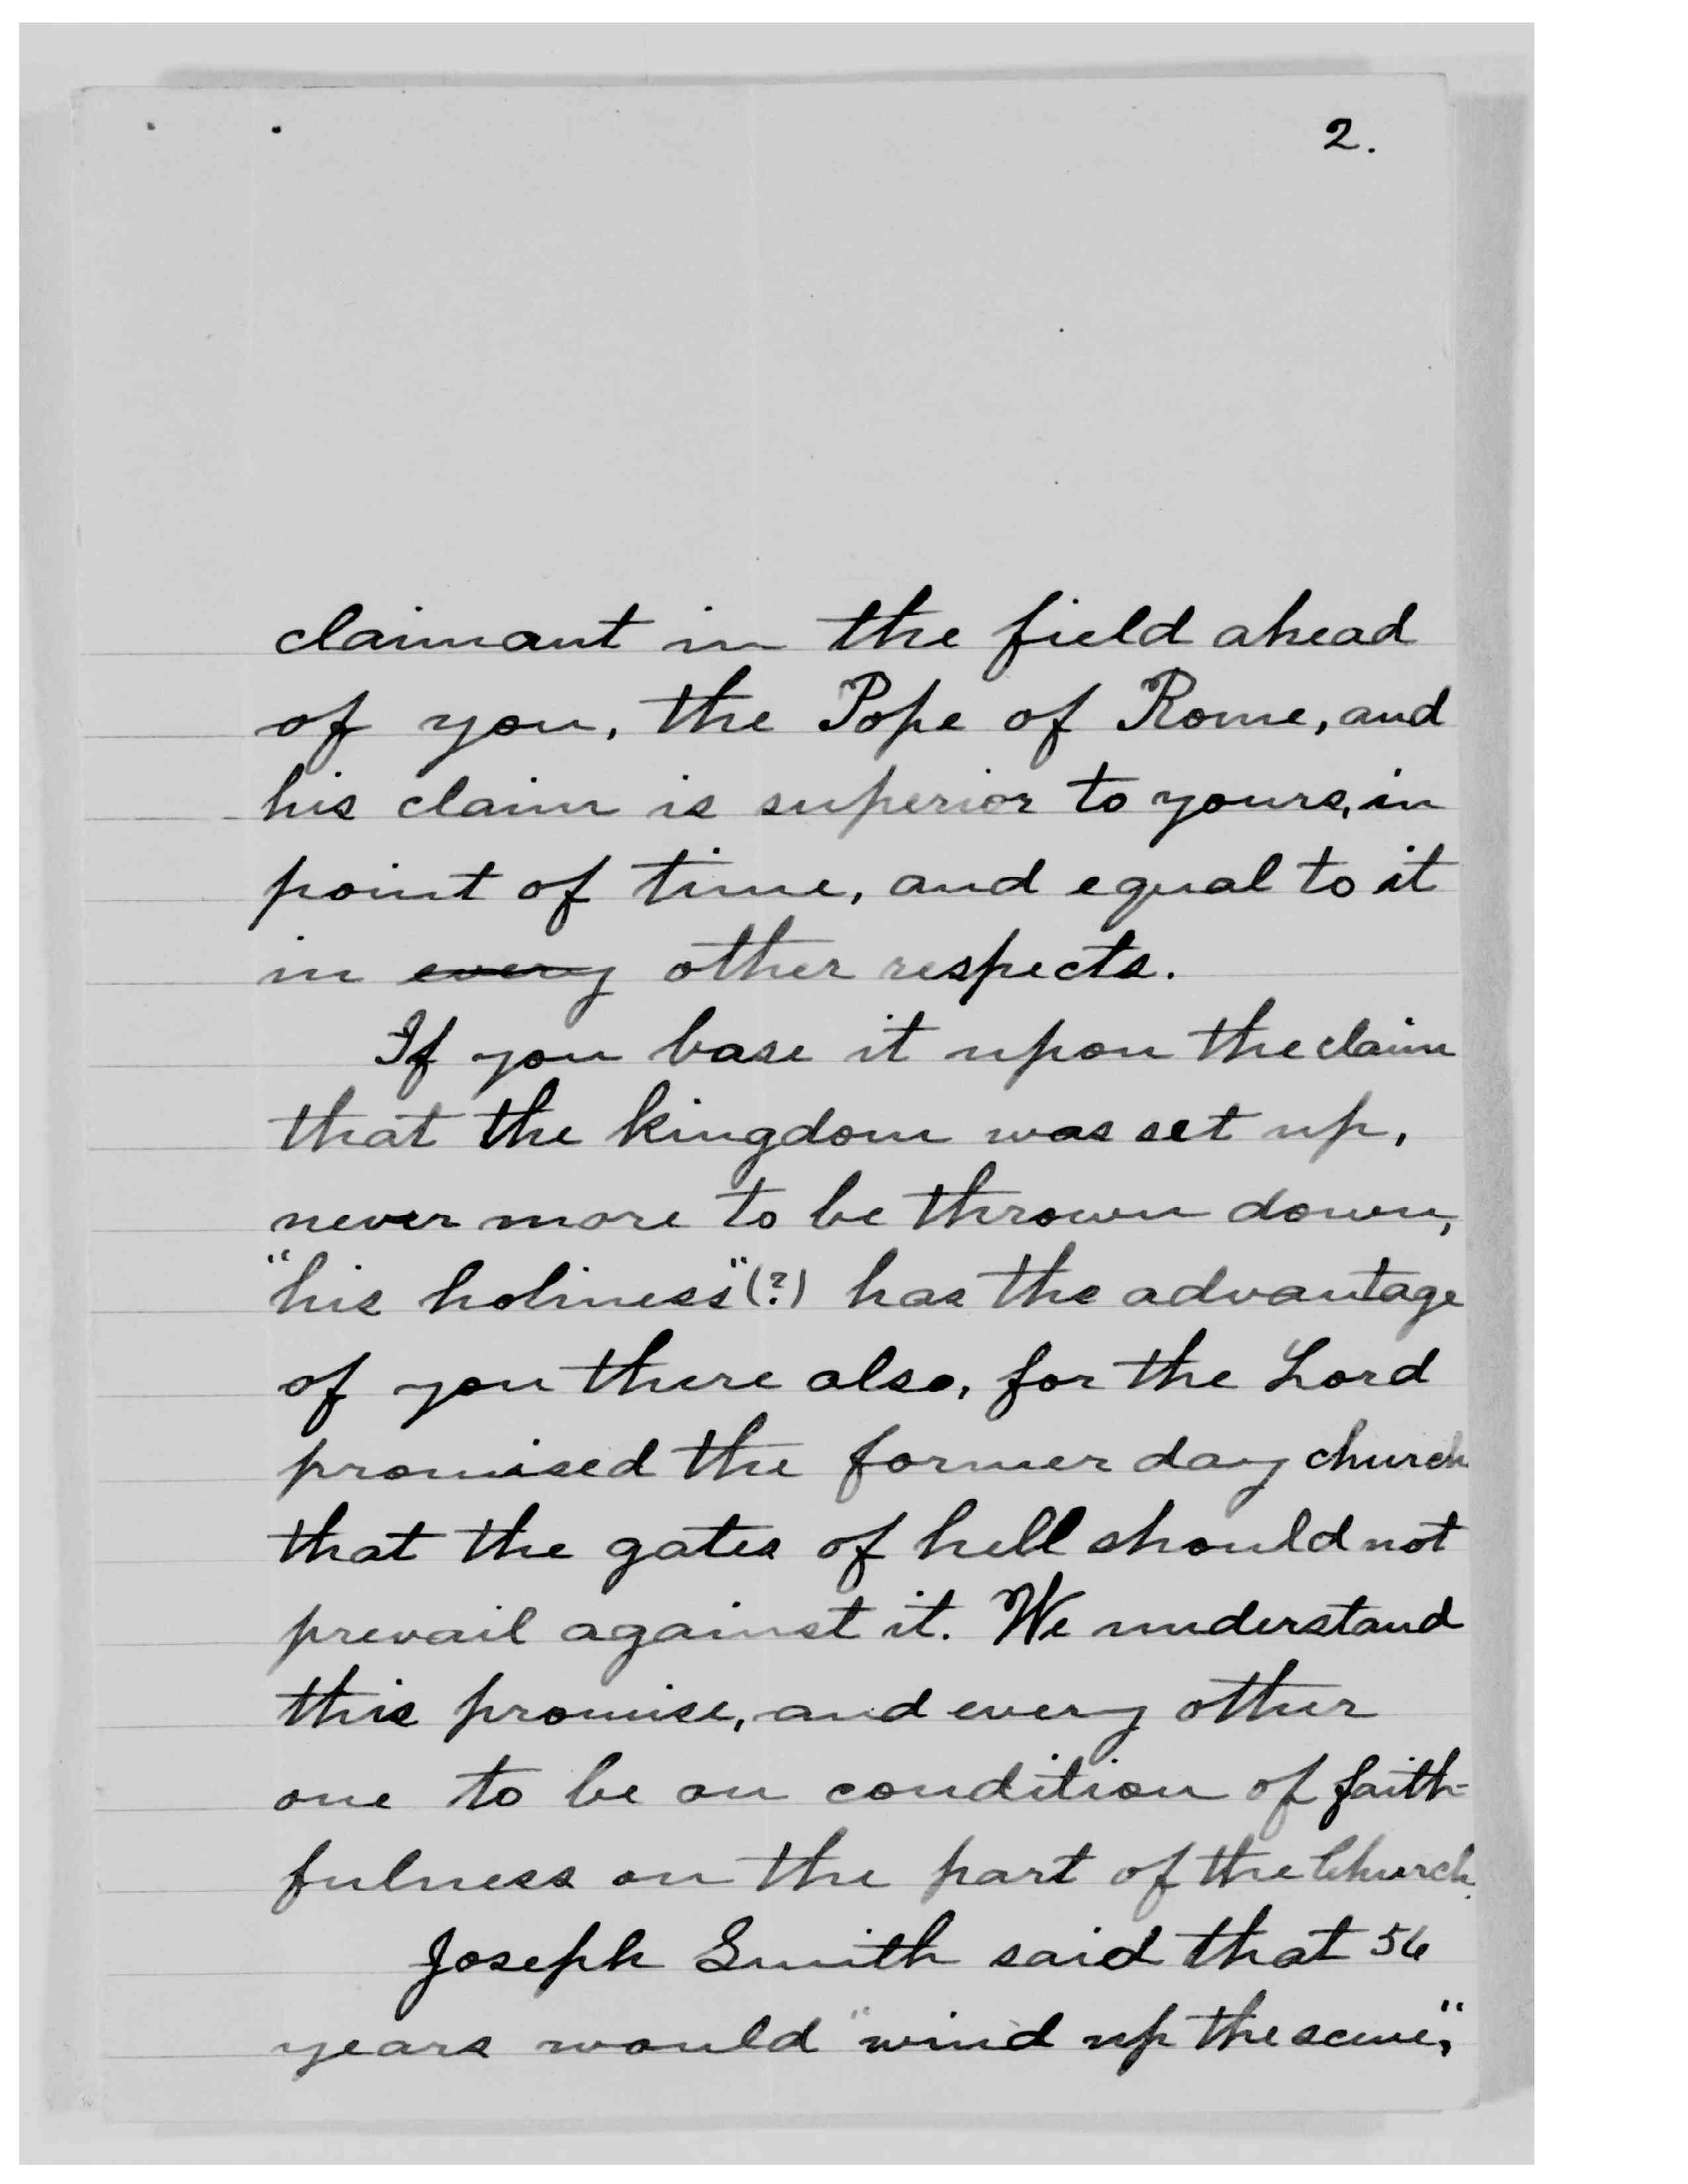 2.
claimant in the field ahead
of you, the Pope of Rome, and
his claim is superior to yours, in
point of time, and equal to it
in every other respects.
If you base it upon the claim
that the kingdom was set up,
never more to be thrown down,
"his holiness"(?) has the advantage
of you there also, for the Lord
promised the former day church
that the gates of hell should not
prevail against it. We understand
this promise, and every other
one to be on condition of faith-
fulness on the part of the Church.
Joseph Smith said that 56
years would "wind up the scene,"